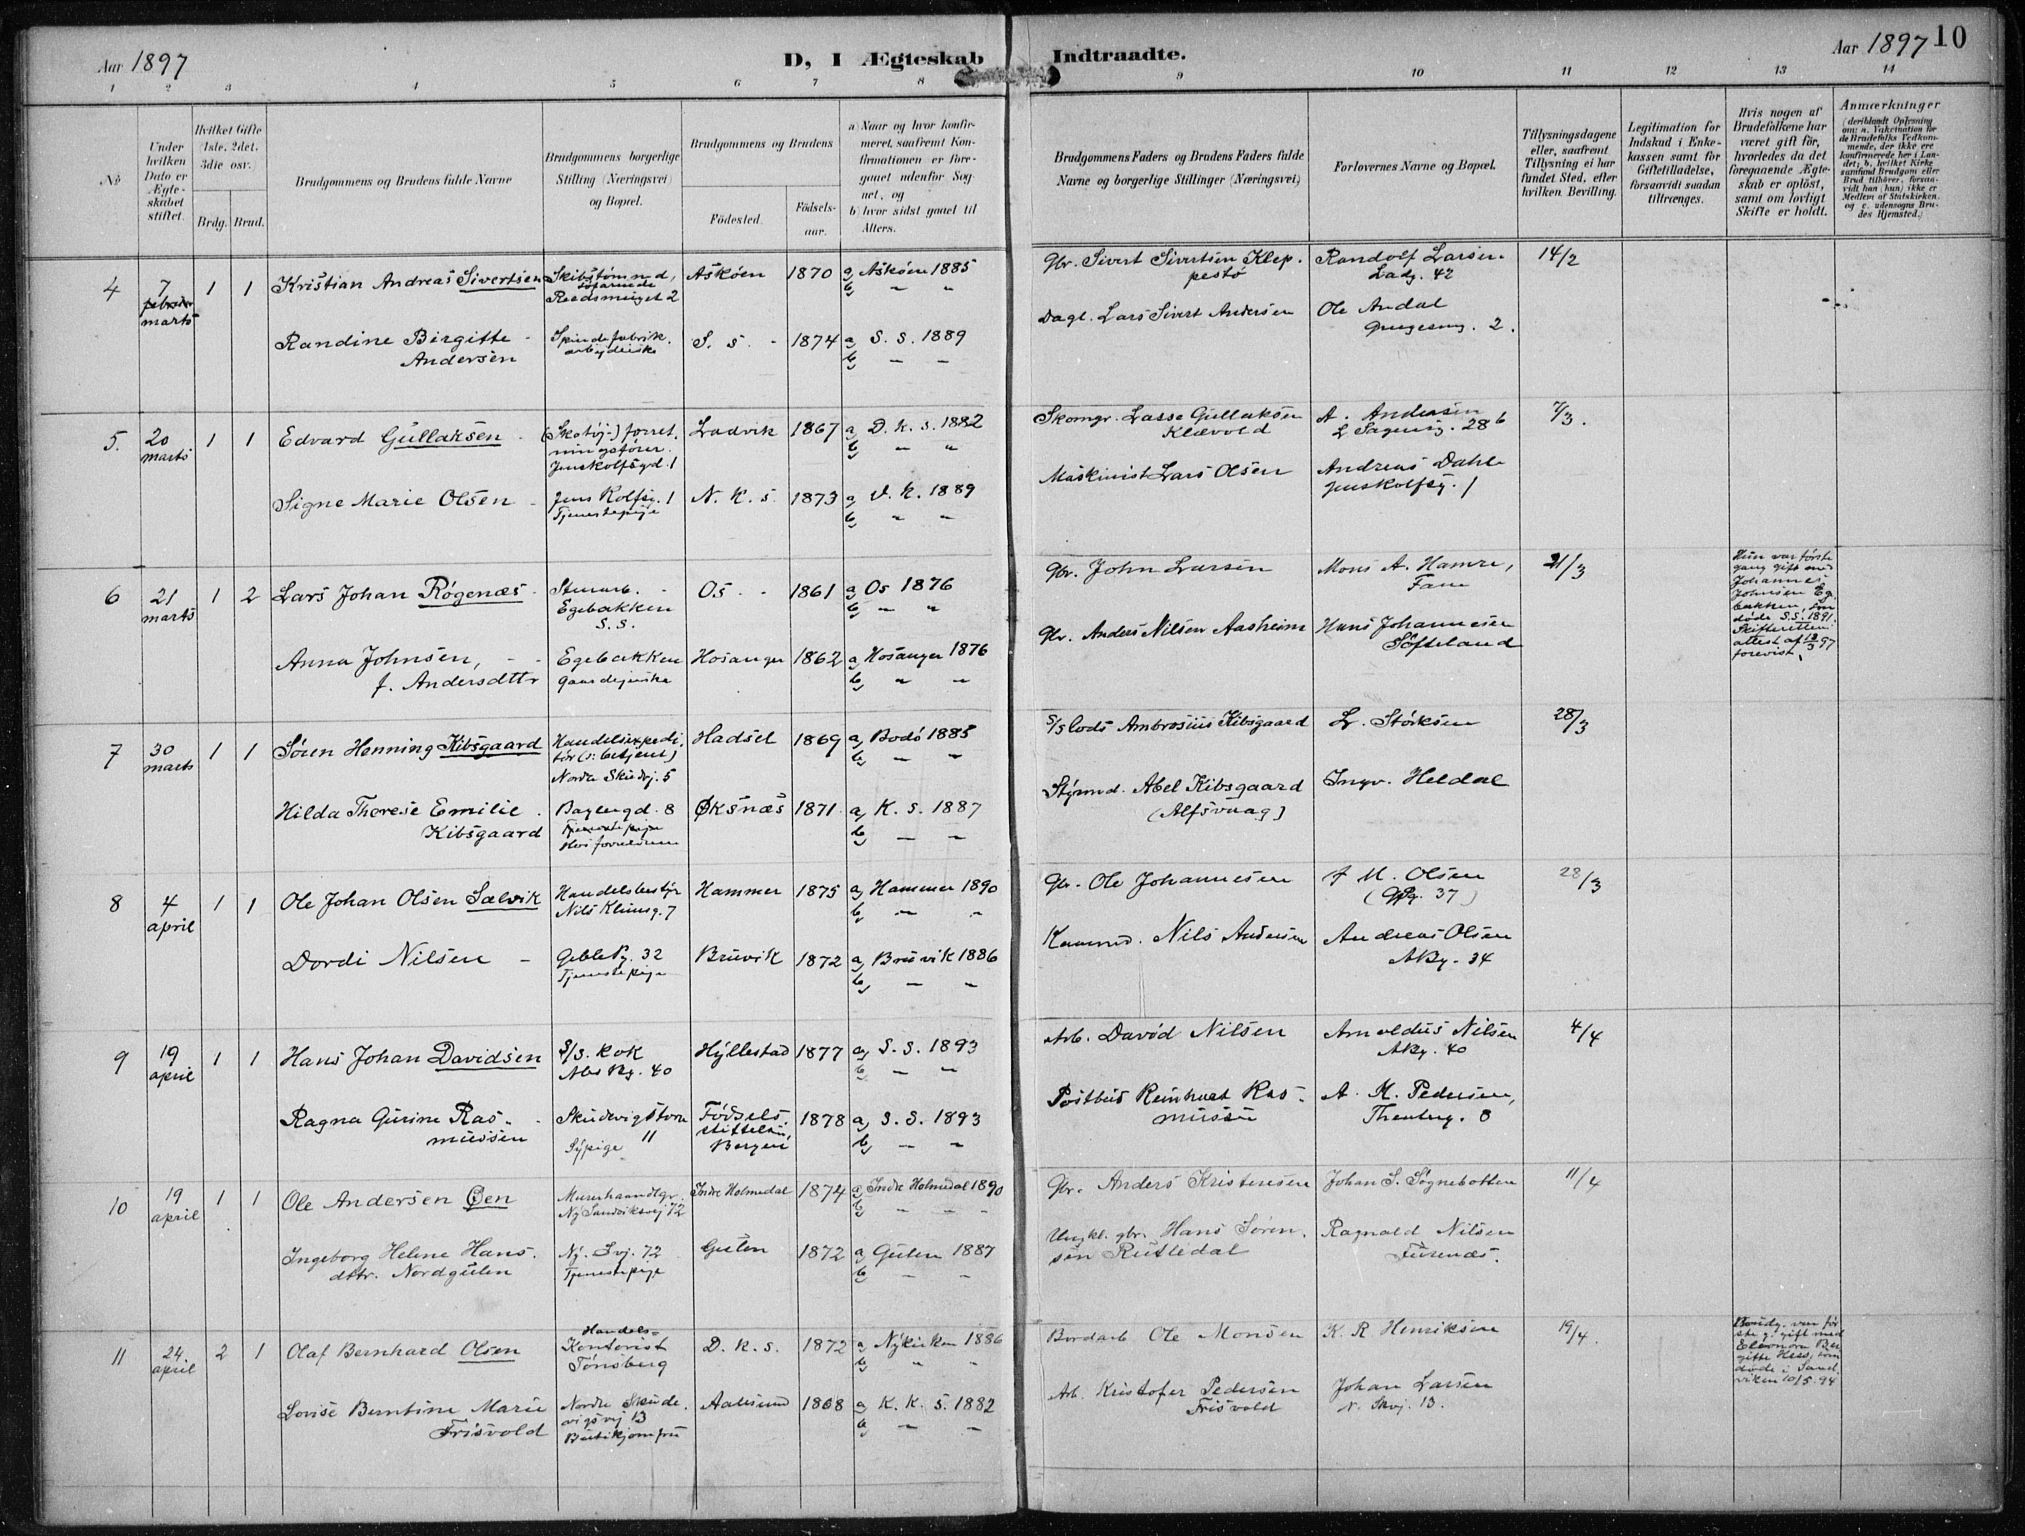 Aar 1897
D, I Ægteskab Indtraadte.
Aar 1897 10
1 2 3 4 5 6 7 8 9 10 11 12 13 14
No
Under
hvilken
Dato er
Ægte-
skabet
stiftet.
Hvilket Gifte
(1ste, 2det,
3die osv.)
Brdg. Brud.
Brudgommens og Brudens fulde Navne
Brudgommens borgerlige
Stilling (Næringsvei)
og Bopæl.
Brudgommens og Brudens
Fødested.
Fødsels-
aar.
a) Naar og hvor konfir-
meret, saafremt Kon-
firmationen er fore-
gaaet udenfor Sog-
net, og
b) hvor sidst gaaet til
Alters.
Brudgommens Faders og Brudens Faders fulde
Navne og borgerlige Stillinger (Næringsvei)
Forlovernes Navne og Bopæl.
Tillysningsdagene
eller, saafremt
Tillysning ei har
fundet Sted, efter
hvilken Bevilling.
Legitimation for
Indskud i Enke-
kassen samt for
Giftetilladelse,
forsaavidt saadan
tiltrænges.
Hvis nogen af
Brudefolkene har
været gift før,
hvorledes da det
foregaaende Ægte-
skab er opløst,
samt om lovligt
Skifte er holdt.
Anmærkninger
(deriblandt Oplysning
om: a. Vakcination for
de Brudefolks Vedkom-
mende, der ikke ere
konfirmerede her i Lan-
det; b. hvilket Kirke
samfund Brudgom eller
Brud tilhører, forsaa-
vidt han (hun) ikke er
Medlem af Statskirken,
og c. udensogns Bru-
des Hjemsted.)
4 7 marts 1 1 Kristian Andreas Sivertsen
Skibstømmd,
Askøen 1870 a) Askøen 1885
b) " "
Gbr. Sivert Sivertsen Klep-
pestø
Randolf Larsen
Ladg. 42
14/2
Randine Birgitte
Andersen
Spindefabrik-
arbejderske
S. s. 1874 a) S. s. 1889
b) " "
Dagl. Lars Sivert Andersen
Ole Andal
2.
5. 20 marts 1 1 Edvard Gullaksen
(Skotøj-) forret-
ningsfører.
Jens Rolfsgd. 1
Ladvik 1867 a) D. k. s. 1882
b) " "
Skomgr. Lasse Gullaksen
Klævold
A. Andersen
28 b
7/3.
Signe Marie Olsen
Jens Rolfsg. 1
Tjenestepige
N. K. s. 1873 a) N. k. 1889
b) " "
Maskinist Lars Olsen
Andreas Dahl
Jens Rolfsg. 1
6 21 marts 1 2 Lars Johan Røgenæs
Stenarb.
Egebakken
S. S.
Os 1861 a) Os 1876
b) " "
Gbr. John Larsen
Mons A. Hamre,
Fane
21/3
Hun var første
gang gift med
Johannes
Johnsen Eg-
bakken, som
døde S.S. 1891.
Skifterettens
attest af 18/3 97
forevist.
Anna Johnsen,
f. Andersdttr
Egebakken
Gaardejerske
Hosanger 1862 a) Hosanger 1876
b) " "
Gbr. Anders Nilsen Aasheim
Hans Johannesen
Søfteland
7 30 marts 1 1 Søren Henning Kibsgaard
Handelsexpedi-
tør (s: betjent)
Nordre Skudvj. 5
Hadsel 1869 a) Bodø 1885
b) " "
S/S lods Ambrosius Kibsgaard
L. Størksen
28/3
Hilda Therese Emilie
Kibsgaard
Baglergd. 8
Tjenestepige
Hos forældrene
Øksnæs 1871 a) K. s. 1887
b) " "
Styrmd. Abel Kibsgaard
(Alfsvaag)
Ingv. Heldal
8 4 april 1 1 Ole Johan Olsen Sælvik
Handelsbestyr
Nils Klimsg. 7
Hammer 1875 a) Hammer 1890
b) " "
Gbr. Ole Johannesen
M. Olsen
37)
28/3
Dordi Nilsen
Gebleg. 32
Tjenestepige
Bruvik 1872 a) Bruvik 1886
b) " "
Nils Andersen
Andreas Olsen
ABg. 34
9 19 april 1 1 Hans Johan Davidsen
S/S. kok
Abs Bg. 40
Hyllestad 1877 a) S. S. 1893
b) " "
Arb. David Nilsen
Arnoldus Nilsen
ABg. 40
4/4
Ragna Gurine Ras-
mussen
Skudevigstorv
11
Sypige
Fødsels-
stiftelsen,
Bergen
1878 a) S. S. 1893
b) " "
Postbud Reinhart Ras-
mussen
A. M. Pedersen,
Theaterg. 8
10 19 april 1 1 Ole Andersen Øen
Murerhaandtgr.
Ny Sandviksvej 72
Indre Holmedal 1874 a) Indre Holmedal 1890
b) " "
Gbr. Anders Kristensen
Johan S. Søgnebotten
11/4
Ingeborg Helene Hans-
dttr. Nordgulen
Ny. Svj. 72
Tjenestepige
Gulen 1872 a) Gulen 1887
b) " "
Ungkl. gbr. Hans Sören-
sen Rutledal
Ragnald Nilsen
Furenæs.
11 24. april 2 1 Olaf Bernhard Olsen
Handels-
Kontorist
Tønsberg
D. k. s. 1872 a) Nykirken 1886
b) " "
Bordarb Ole Monsen
K. R Henriksen
19/4.
Brudg. var før-
ste g. gift med
Eleonora Bir-
gitte Hess, som
døde i Sand-
viken 10/5 94
Lovise Berntine Marie
Frisvold
Nordre Skude-
vigsvej 13
Butikjomfru
Aalesund 1868 a) K. K. s. 1882
b) " "
Arb. Kristofer Pedersen
Frisvold
Johan Larsen
N. Skvj. 13.